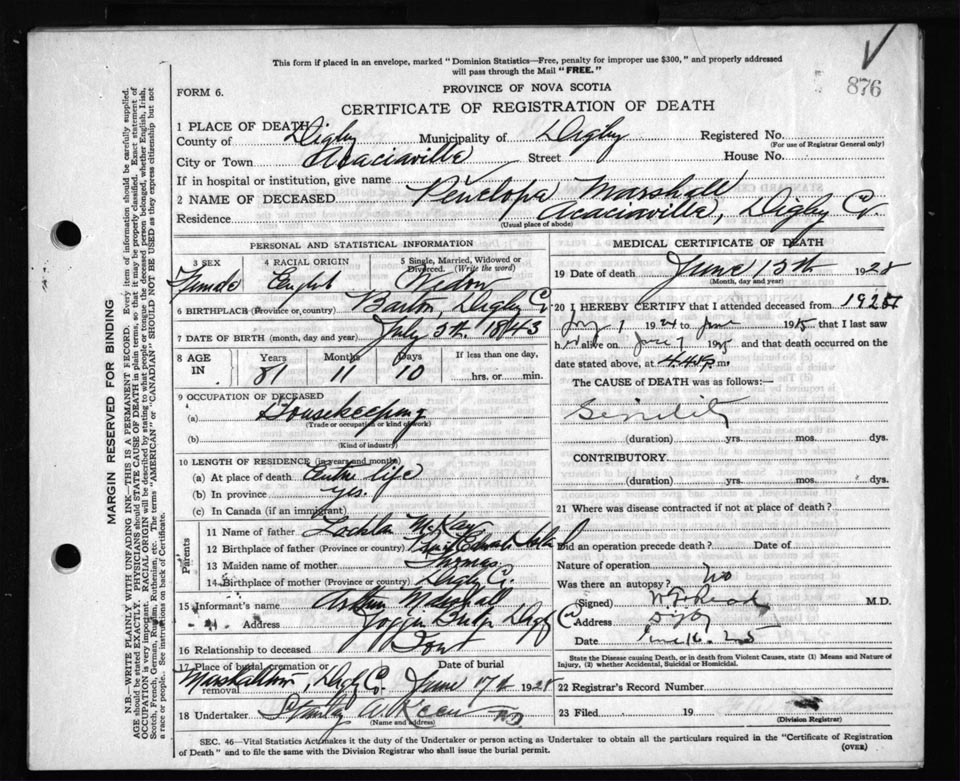 This form if placed in an envelope, marked "Dominion Statistics—Free, penalty for improper use $300," and properly addressed
will pass through the Mail "FREE."
876
FORM 6.
PROVINCE OF NOVA SCOTIA
CERTIFICATE OF REGISTRATION OF DEATH
1 PLACE OF DEATH
County of Digby Municipality of Digby Registered No.
(For use of Registrar General only)
City or Town Acaciaville Street House No.
If in hospital or institution, give name
2 NAME OF DECEASED Penelopa Marshall
Residence Acaciaville, Digby Co.
(Usual place of abode)
PERSONAL AND STATISTICAL INFORMATION
3 SEX 4 RACIAL ORIGIN 5 Single, Married, Widowed or Divorced. (Write the word)
Female English Widow
6 BIRTHPLACE (Province or, country) Barton, Digby Co
7 DATE OF BIRTH (month, day and year) July 5th. 1843
8 AGE IN Years Months Days If less than one day.
81 11 10 hrs. or min.
9 OCCUPATION OF DECEASED
(a) Housekeeping
(Trade or occupation or kind of work)
(b)
(Kind of industry)
10 LENGTH OF RESIDENCE (in years and months)
(a) At place of death Entire life
(b) In province yes.
(c) In Canada (if an immigrant)
Parents
11 Name of father Lochlan McKay
12 Birthplace of father (Province or country) Prince Edward Island
13 Maiden name of mother Thomas
14 Birthplace of mother (Province or country) Digby Co.
15 Informant's name Arthur Marshall
Address Joggin Bridge Digby Co
16 Relationship to deceased Son
17 Place of burial, cremation or removal Date of burial
Marshalltown, Digby Co. June 17th 1925
18 Undertaker Stanley W.
(Name and address)
MEDICAL CERTIFICATE OF DEATH
19 Date of death June 15th 1925
(Month, day and year)
20 I HEREBY CERTIFY that I attended deceased from
1 19 to June 1925 that I last saw
h alive on June 7 1925 and that death occurred on
date stated above, at m.
The CAUSE of DEATH was as follows:—
Senility
(duration) yrs. mos. dys.
CONTRIBUTORY.
(duration) yrs. mos. dys.
21 Where was disease contracted if not at place of death?
Did an operation precede death? Date of
Nature of operation
Was there an autopsy? No
(Signed) M.D.
Address Digby
Date June 16. 25
State the Disease causing Death, or in death from Violent Causes, state (1) Means and Nature of
Injury, (2) whether Accidental, Suicidal or Homicidal.
22 Registrar's Record Number
23 Filed 19
(Division Registrar)
SEC. 46—Vital Statistics Act makes it the duty of the Undertaker or person acting as Undertaker to obtain all the particulars required in the "Certificate of Registration
of Death" and to file the same with the Division Registrar who shall issue the burial permit.
(OVER)
MARGIN RESERVED FOR BINDING
N.B.—WRITE PLAINLY WITH UNFADING INK—THIS IS A PERMANENT RECORD. Every item of information should be carefully supplied.
AGE should be stated EXACTLY. PHYSICIANS should STATE CAUSE OF DEATH in plain terms, so that it may be properly classified. Exact statement of
OCCUPATION is very important. RACIAL ORIGIN will be described by stating to what people or tongue the deceased person belonged, whether English, Irish,
Scotch, French, German, Russian, Ruthenian, etc. The terms "AMERICAN" or "CANADIAN" SHOULD NOT BE USED as they express citizenship but not
a race or people. See instructions on back of Certificate.